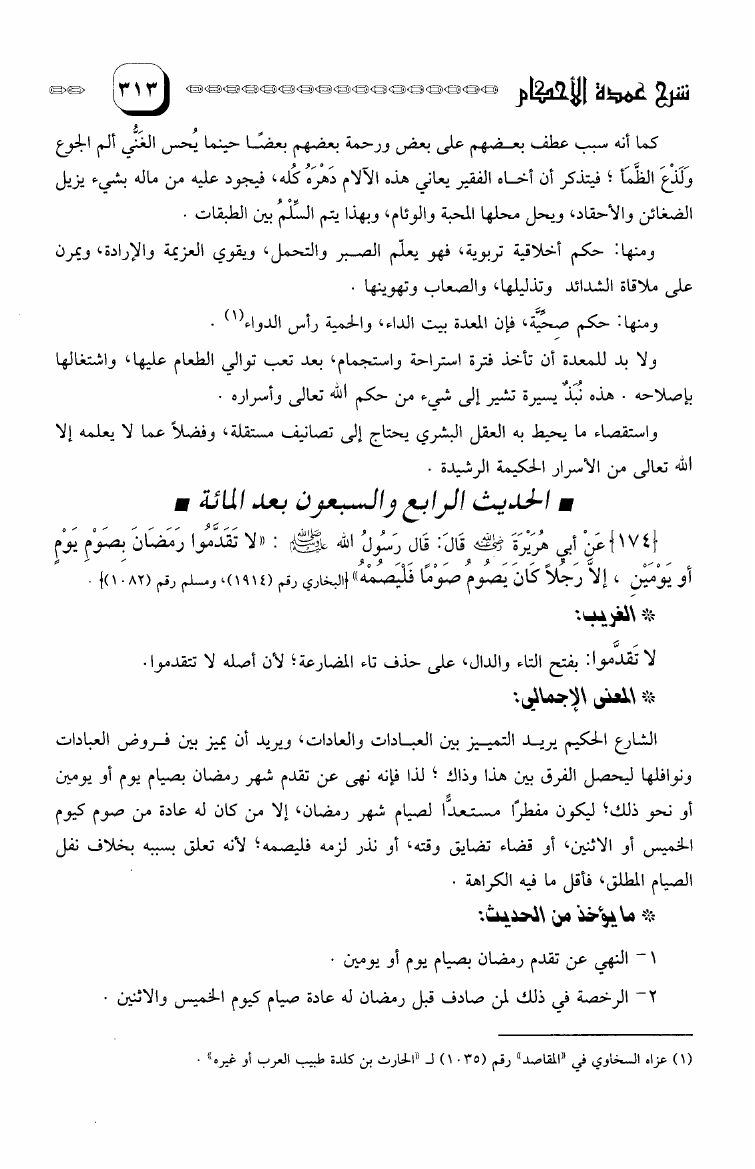 شرح عمدة الأحكام ٣١٣
كما أنه سبب عطف بعضهم على بعض ورحمة بعضهم بعضًا حينما يُحس الغَنيُّ ألم الجوع
وَلَذْعَ الظَّمأ ؛ فيتذكر أن أخاه الفقير يعاني هذه الآلام دَهْرَهُ كُله، فيجود عليه من ماله بشيء يزيل
الضغائن والأحقاد، ويحل محلها المحبة والوئام، وبهذا يتم السِّلْمُ بين الطبقات .
ومنها: حكم أخلاقية تربوية، فهو يعلّم الصبر والتحمل، ويقوي العزيمة والإرادة، ويمرن
على ملاقاة الشدائد وتذليلها، والصعاب وتهوينها .
ومنها: حكم صحِّيَّة، فإن المعدة بيت الداء، والحمية رأس الدواء(١) .
ولا بد للمعدة أن تأخذ فترة استراحة واستجمام، بعد تعب توالي الطعام عليها، واشتغالها
بإصلاحه . هذه نُبَذٌ يسيرة تشير إلى شيء من حكم الله تعالى وأسراره .
واستقصاء ما يحيط به العقل البشري يحتاج إلى تصانيف مستقلة، وفضلاً عما لا يعلمه إلا
الله تعالى من الأسرار الحكيمة الرشيدة .
■ الحديث الرابع والسبعون بعد المائة ■
{١٧٤} عَنْ أبي هُرَيْرَةَ رضي الله عنه قَالَ: قَال رَسُولُ الله ﷺ : «لا تَقَدَّمُوا رَمَضَانَ بِصَوْمِ يَوْمٍ
أو يَوْمَيْنِ ، إلاَّ رَجُلاً كَانَ يَصُومُ صَوْمًا فَلْيَصُمْهُ» {البخاري رقم (١٩١٤)، ومسلم رقم (١٠٨٢)} .
* الغريب:
لا تَقَدَّموا: بفتح التاء والدال، على حذف تاء المضارعة؛ لأن أصله لا تتقدموا.
* المعنى الإجمالي:
الشارع الحكيم يريد التمييز بين العبادات والعادات، ويريد أن يميز بين فروض العبادات
ونوافلها ليحصل الفرق بين هذا وذاك ؛ لذا فإنه نهى عن تقدم شهر رمضان بصيام يوم أو يومين
أو نحو ذلك؛ ليكون مفطرًا مستعدًّا لصيام شهر رمضان، إلا من كان له عادة من صوم كيوم
الخميس أو الاثنين، أو قضاء تضايق وقته، أو نذر لزمه فليصمه؛ لأنه تعلق بسببه بخلاف نفل
الصيام المطلق، فأقل ما فيه الكراهة .
* ما يؤخذ من الحديث:
١- النهي عن تقدم رمضان بصيام يوم أو يومين .
٢- الرخصة في ذلك لمن صادف قبل رمضان له عادة صيام كيوم الخميس والاثنين .
(١) عزاه السخاوي في «المقاصد» رقم (١٠٣٥) لـ «الحارث بن كلدة طبيب العرب أو غيره» .